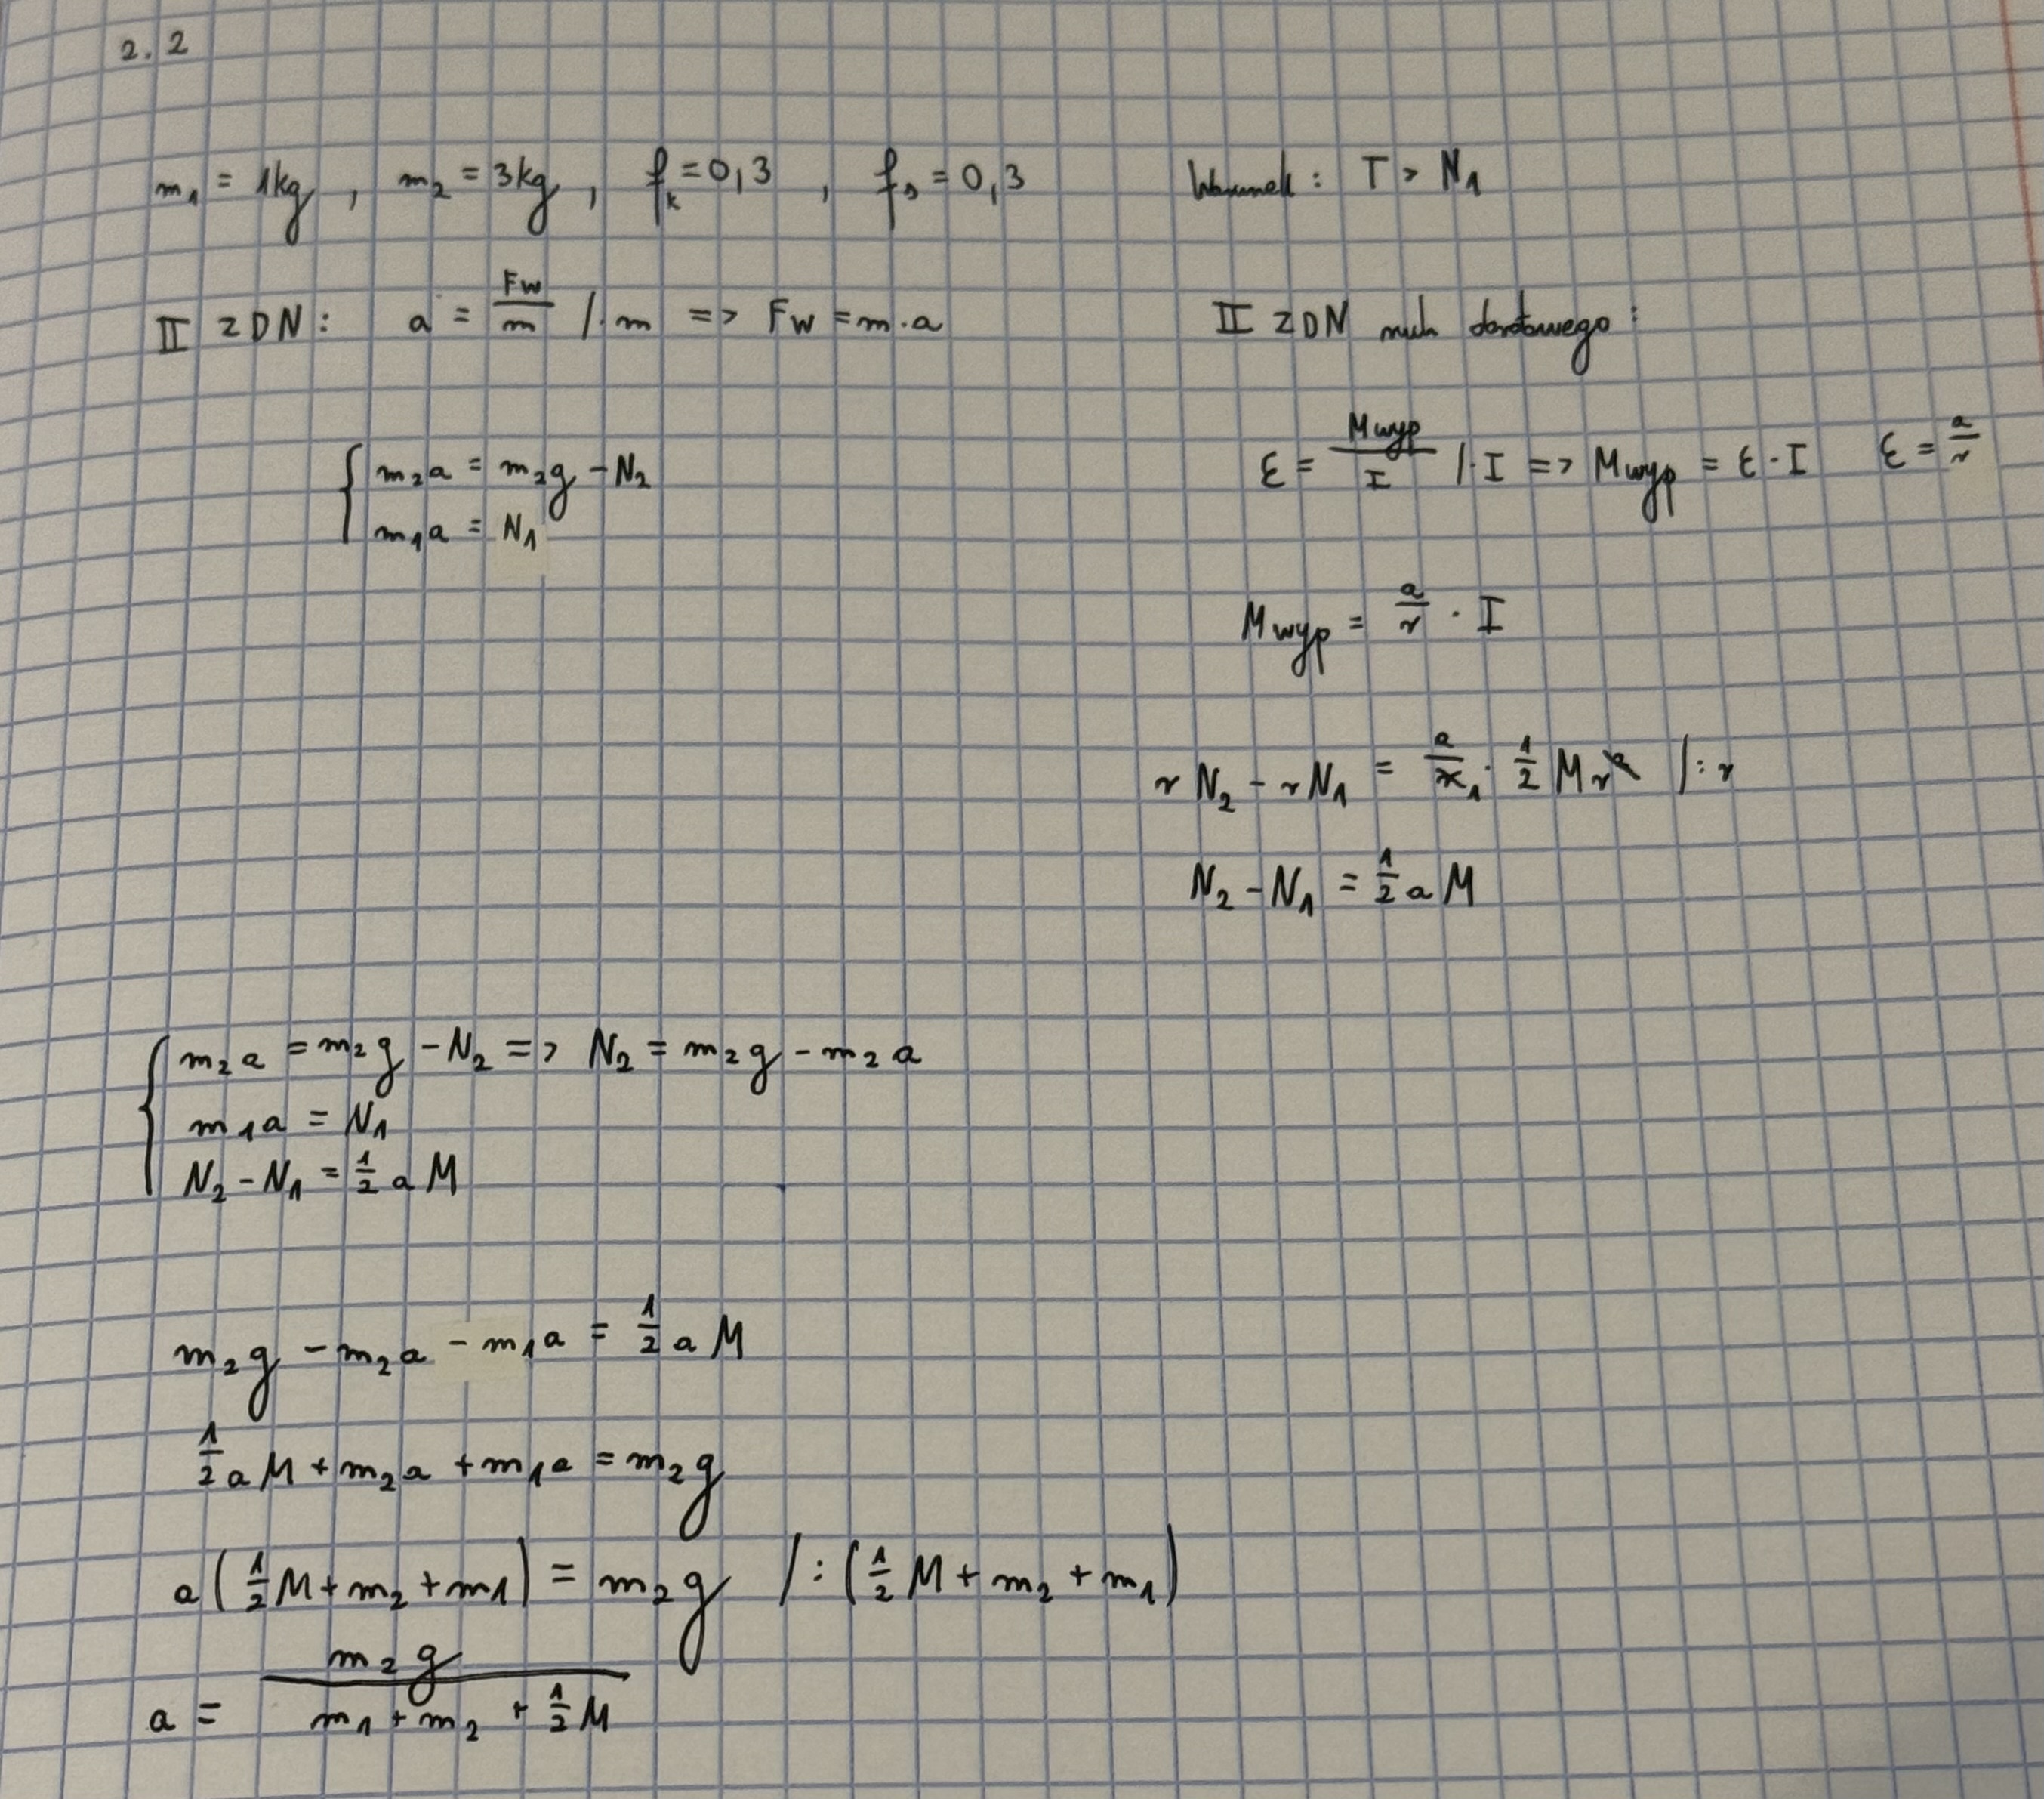 2.2
m₁ = 1kg , m₂ = 3kg , fₖ = 0,3 , fₛ = 0,3
Warunek : T > N₁
II ZDN : a = Fw/m /·m => Fw = m·a
II ZDN ruch obrotowego :
{ m₂a = m₂g - N₂
m₁a = N₁
ε = Mwyp/I /·I => Mwyp = ε·I ε = a/r
Mwyp = a/r · I
rN₂ - rN₁ = a/r₁ · 1/2 Mr² /:r
N₂ - N₁ = 1/2 a M
{ m₂a = m₂g - N₂ => N₂ = m₂g - m₂a
m₁a = N₁
N₂ - N₁ = 1/2 a M
m₂g - m₂a - m₁a = 1/2 a M
1/2 a M + m₂a + m₁a = m₂g
a(1/2 M + m₂ + m₁) = m₂g /:(1/2 M + m₂ + m₁)
a = m₂g/(m₁ + m₂ + 1/2 M)